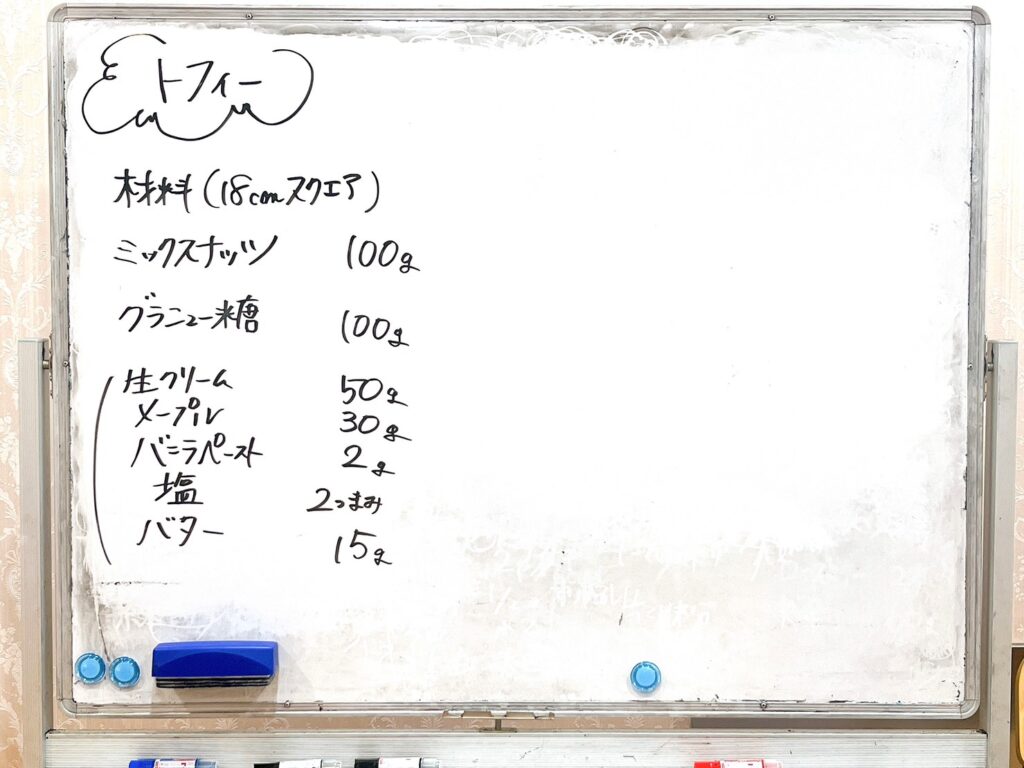 トフィー
材料(18cmスクエア)
ミックスナッツ 100g
グラニュー糖 100g
生クリーム 50g
メープル 30g
バニラペースト 2g
塩 2つまみ
バター 15g